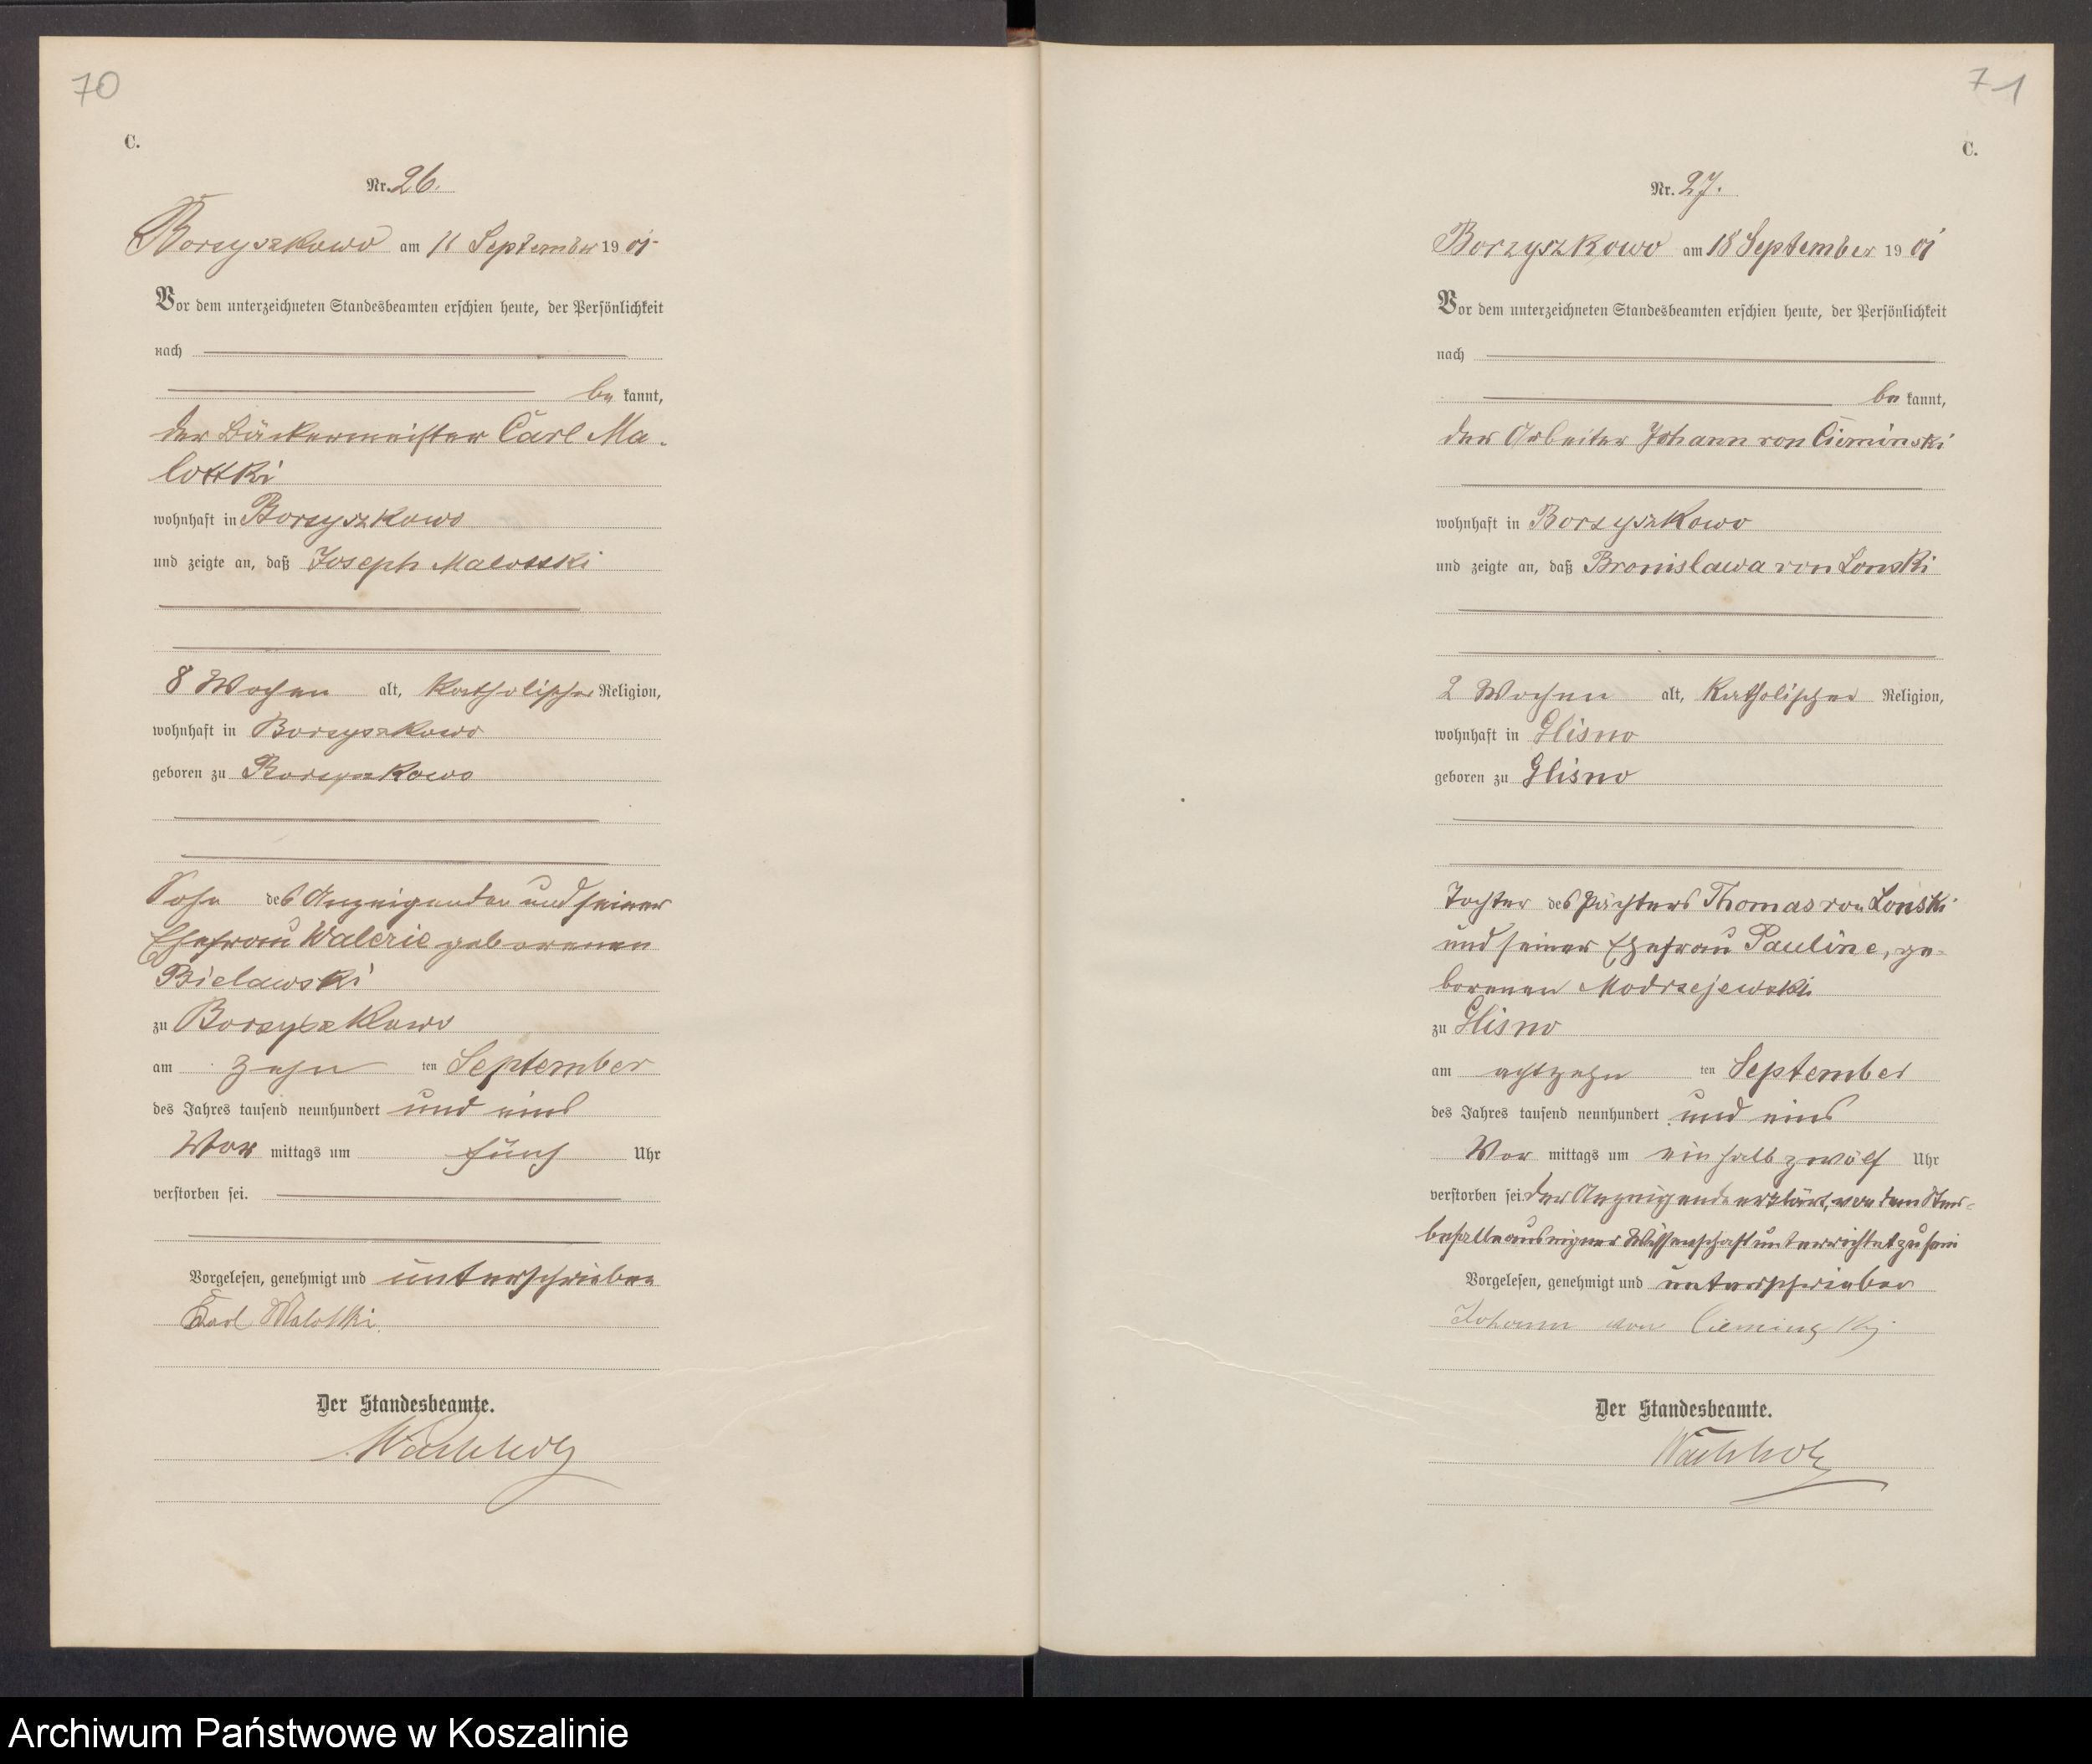 70
C.
Nr. 26.
Borzyszkowo am 11 September 19 01
Vor dem unterzeichneten Standesbeamten erschien heute, der Persönlichkeit
nach
be kannt,
der Bäckermeister Carl Ma-
lottki
wohnhaft in Borzyszkowo
und zeigte an, daß Joseph Malottki
8 Wochen alt, katholischer Religion,
wohnhaft in Borzyszkowo
geboren zu Borzyszkowo
Sohn des Anzeigenden und seiner
Ehefrau Walerie geborenen
Bielawski
zu Borzyszkowo
am zehn ten September
des Jahres tausend neunhundert und eins
Vor mittags um fünf Uhr
verstorben sei.
Vorgelesen, genehmigt und unterschrieben
Karl Malottki
Der Standesbeamte.
Wachholz
71
C.
Nr. 27.
Borzyszkowo am 18 September 19 01
Vor dem unterzeichneten Standesbeamten erschien heute, der Persönlichkeit
nach
be kannt,
der Arbeiter Johann von Cieminski
wohnhaft in Borzyszkowo
und zeigte an, daß Bronislawa von Lonski
2 Wochen alt, katholischer Religion,
wohnhaft in Glisno
geboren zu Glisno
Tochter des Pächters Thomas von Lonski
und seiner Ehefrau Pauline, ge-
borenen Modrzejewski
zu Glisno
am achtzehn ten September
des Jahres tausend neunhundert und eins
Vor mittags um ein halb zwölf Uhr
verstorben sei. Der Anzeigende erklärt, von dem Ster-
befalle aus eigner Wissenschaft unterrichtet zu sein
Vorgelesen, genehmigt und unterschrieben
Johann von Cieminski
Der Standesbeamte.
Wachholz
Archiwum Państwowe w Koszalinie